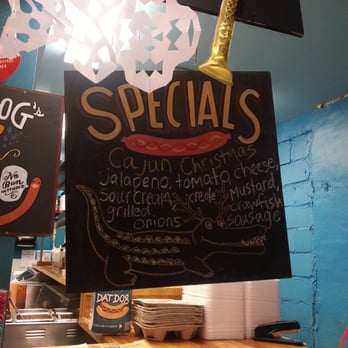 SPECIALS
Cajun Christmas
jalapeno, tomato, cheese,
sour cream, creole mustard,
grilled onions
crawfish sausage
OG's
No
Run
DAT DOG